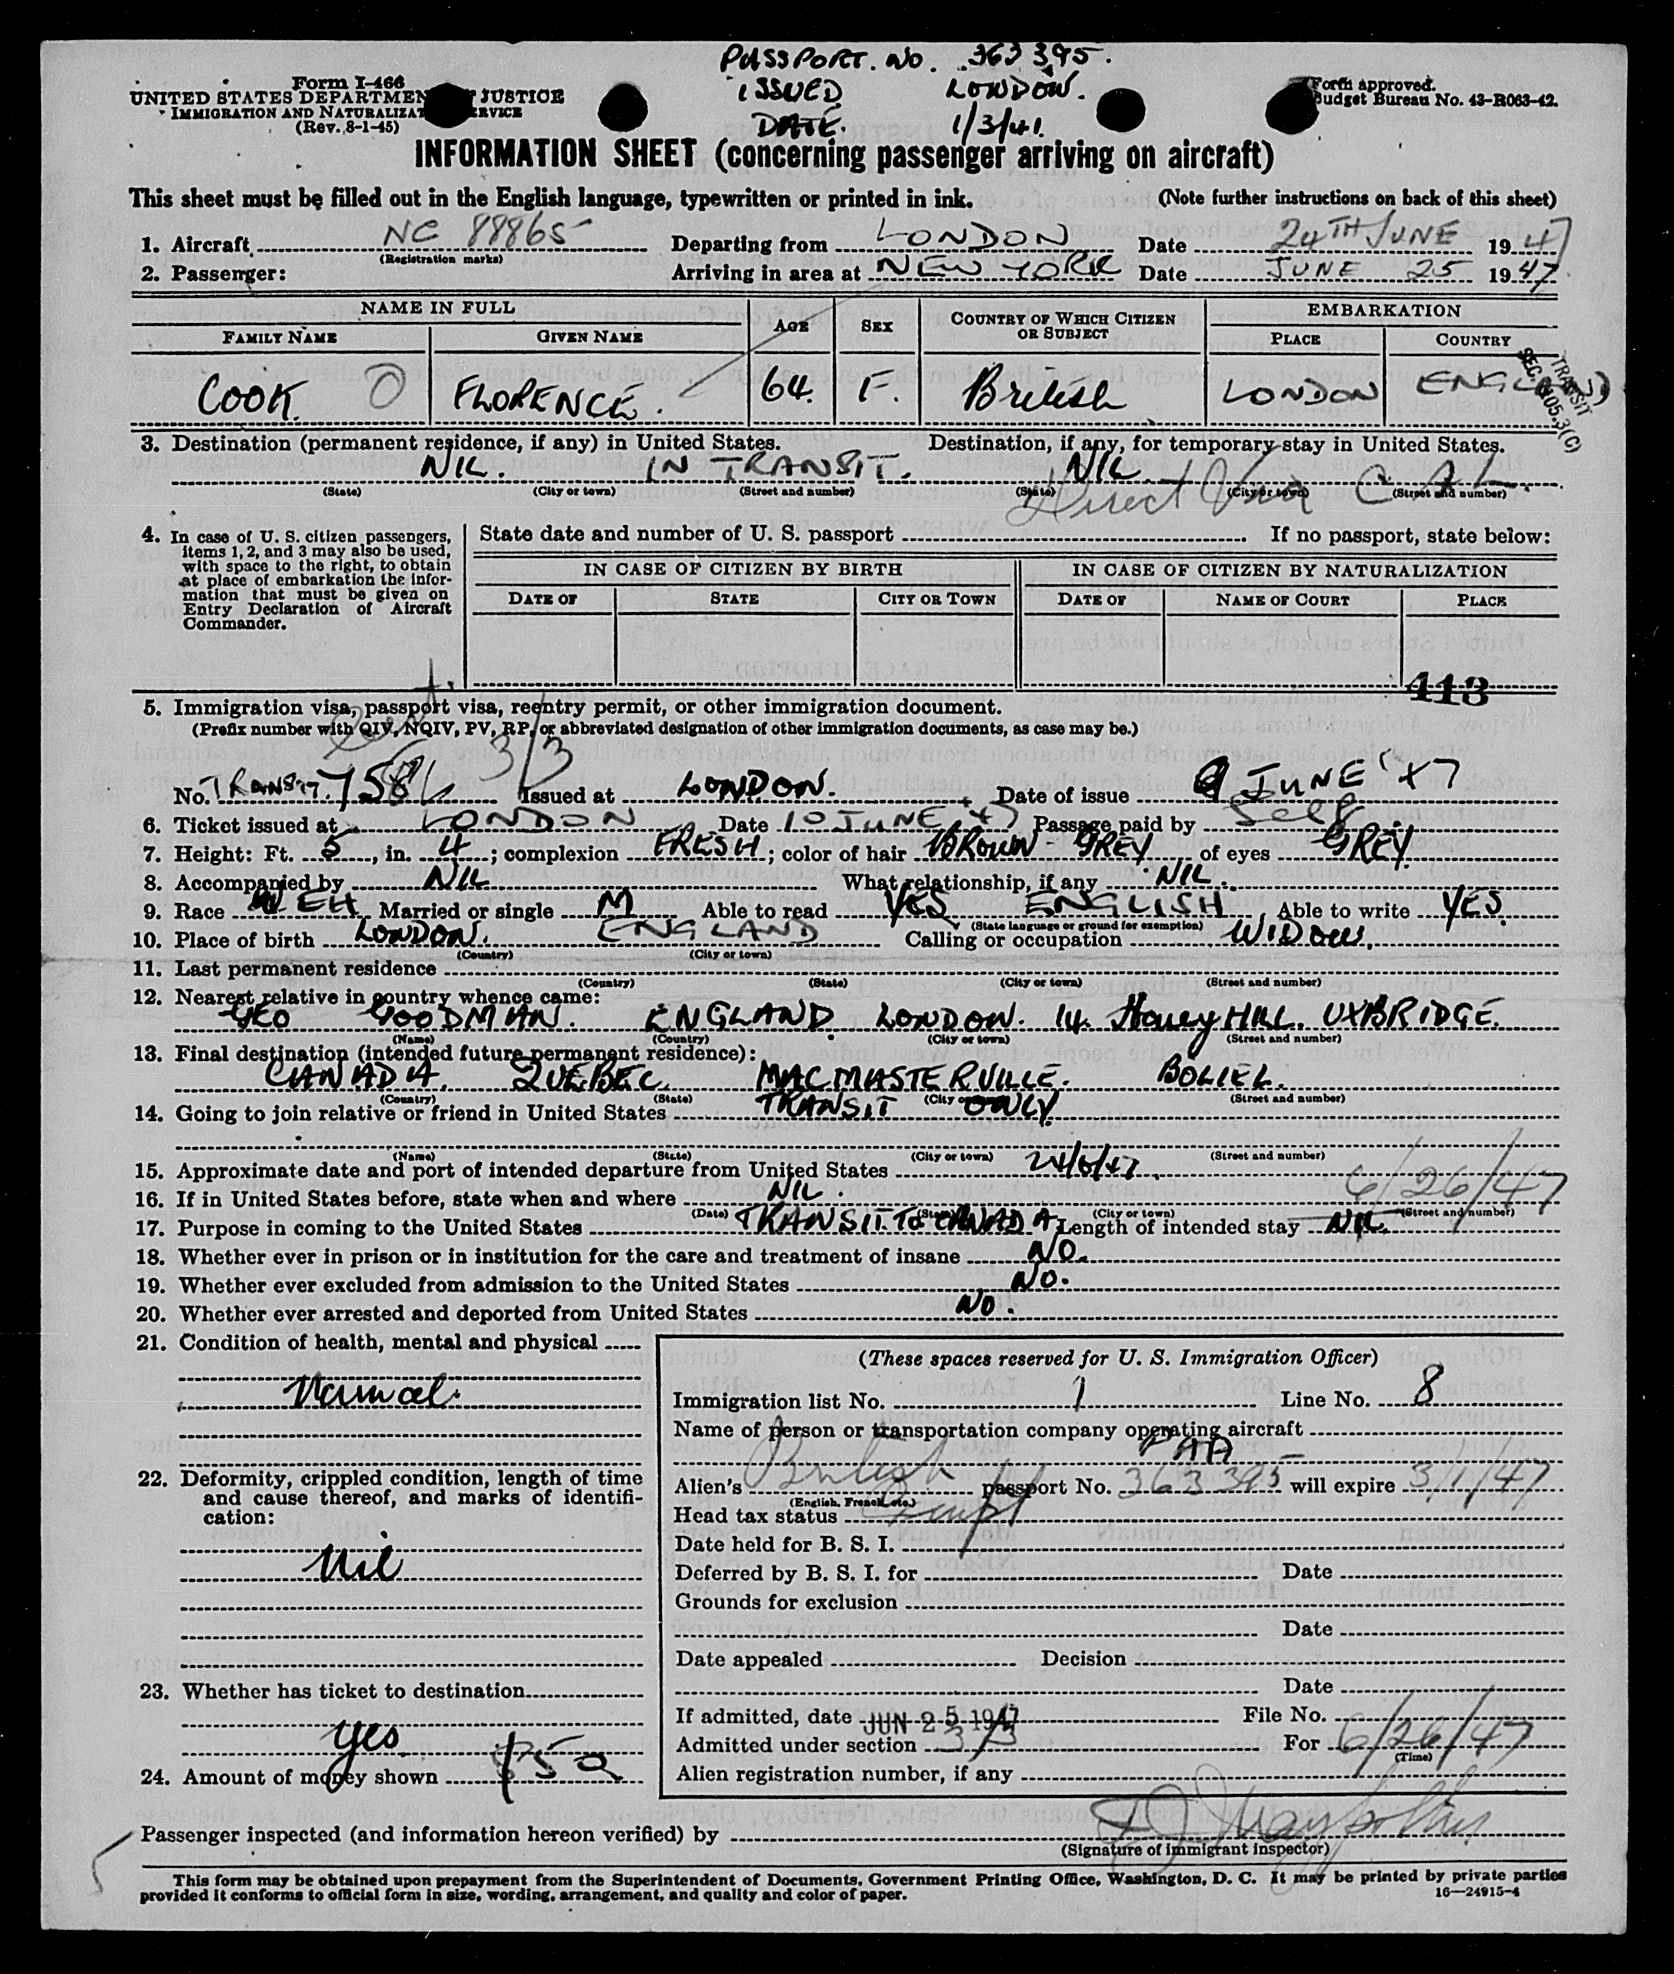 PASSPORT. NO. 363395.
ISSUED LONDON.
DATE. 1/3/41.
Form I-466
UNITED STATES DEPARTMENT OF JUSTICE
IMMIGRATION AND NATURALIZATION SERVICE
(Rev. 8-1-45)
Form approved.
Budget Bureau No. 43-R063-42.
INFORMATION SHEET (concerning passenger arriving on aircraft)
This sheet must be filled out in the English language, typewritten or printed in ink. (Note further instructions on back of this sheet)
1. Aircraft NC 88865 Departing from LONDON Date 24TH JUNE 1947
(Registration marks)
2. Passenger: Arriving in area at NEW YORK Date JUNE 25 1947
NAME IN FULL AGE SEX COUNTRY OF WHICH CITIZEN OR SUBJECT EMBARKATION
FAMILY NAME GIVEN NAME PLACE COUNTRY
COOK. FLORENCE. 64. F. British LONDON ENGLAND
TRANSIT
SEC. 105.3(C)
3. Destination (permanent residence, if any) in United States. Destination, if any, for temporary stay in United States.
NIL. IN TRANSIT. NIL.
(State) (City or town) (Street and number) (State) (City or town) (Street and number)
Direct Via C A L.
4. In case of U. S. citizen passengers, items 1, 2, and 3 may also be used, with space to the right, to obtain at place of embarkation the information that must be given on Entry Declaration of Aircraft Commander.
State date and number of U. S. passport . If no passport, state below:
IN CASE OF CITIZEN BY BIRTH IN CASE OF CITIZEN BY NATURALIZATION
DATE OF STATE CITY OR TOWN DATE OF NAME OF COURT PLACE
413
5. Immigration visa, passport visa, reentry permit, or other immigration document.
(Prefix number with QIV, NQIV, PV, RP, or abbreviated designation of other immigration documents, as case may be.)
3/3
No. TRANSIT. 7586 Issued at LONDON. Date of issue 9 JUNE '47
6. Ticket issued at LONDON Date 10 JUNE 47 Passage paid by Self
7. Height: Ft. 5, in. 4; complexion FRESH; color of hair BROWN - GREY of eyes GREY.
8. Accompanied by NIL What relationship, if any NIL.
9. Race WEH Married or single M Able to read YES ENGLISH, Able to write YES.
(State language or ground for exemption)
10. Place of birth LONDON. ENGLAND Calling or occupation WIDOW.
(Country) (City or town)
11. Last permanent residence
(Country) (State) (City or town) (Street and number)
12. Nearest relative in country whence came:
GEO GOODMAN. ENGLAND LONDON. 14 Honey HILL. UXBRIDGE.
(Name) (Country) (City or town) (Street and number)
13. Final destination (intended future permanent residence):
CANADA. QUEBEC. MACMASTERVILLE. BOLIEL.
(Country) (State) (City or town) (Street and number)
14. Going to join relative or friend in United States TRANSIT ONLY.
(Name) (State) (City or town) (Street and number)
15. Approximate date and port of intended departure from United States 24/6/47. 6/26/47
16. If in United States before, state when and where NIL.
(Date) (State) (City or town) (Street and number)
17. Purpose in coming to the United States TRANSIT TO CANADA Length of intended stay NIL.
18. Whether ever in prison or in institution for the care and treatment of insane NO.
19. Whether ever excluded from admission to the United States NO.
20. Whether ever arrested and deported from United States NO.
21. Condition of health, mental and physical
Normal.
22. Deformity, crippled condition, length of time and cause thereof, and marks of identification:
Nil
23. Whether has ticket to destination
yes
24. Amount of money shown $50
(These spaces reserved for U. S. Immigration Officer)
Immigration list No. 1 Line No. 8
Name of person or transportation company operating aircraft
PAA
Alien's British passport No. 363395 will expire 3/1/47
(English, French, etc.)
Head tax status Exempt
Date held for B. S. I.
Deferred by B. S. I. for Date
Grounds for exclusion
Date
Date appealed Decision
Date
If admitted, date JUN 25 1947 File No.
Admitted under section 3/3 For 6/26/47
(Time)
Alien registration number, if any
Passenger inspected (and information hereon verified) by
(Signature of immigrant inspector)
This form may be obtained upon prepayment from the Superintendent of Documents, Government Printing Office, Washington, D. C. It may be printed by private parties
provided it conforms to official form in size, wording, arrangement, and quality and color of paper. 16—24915-4